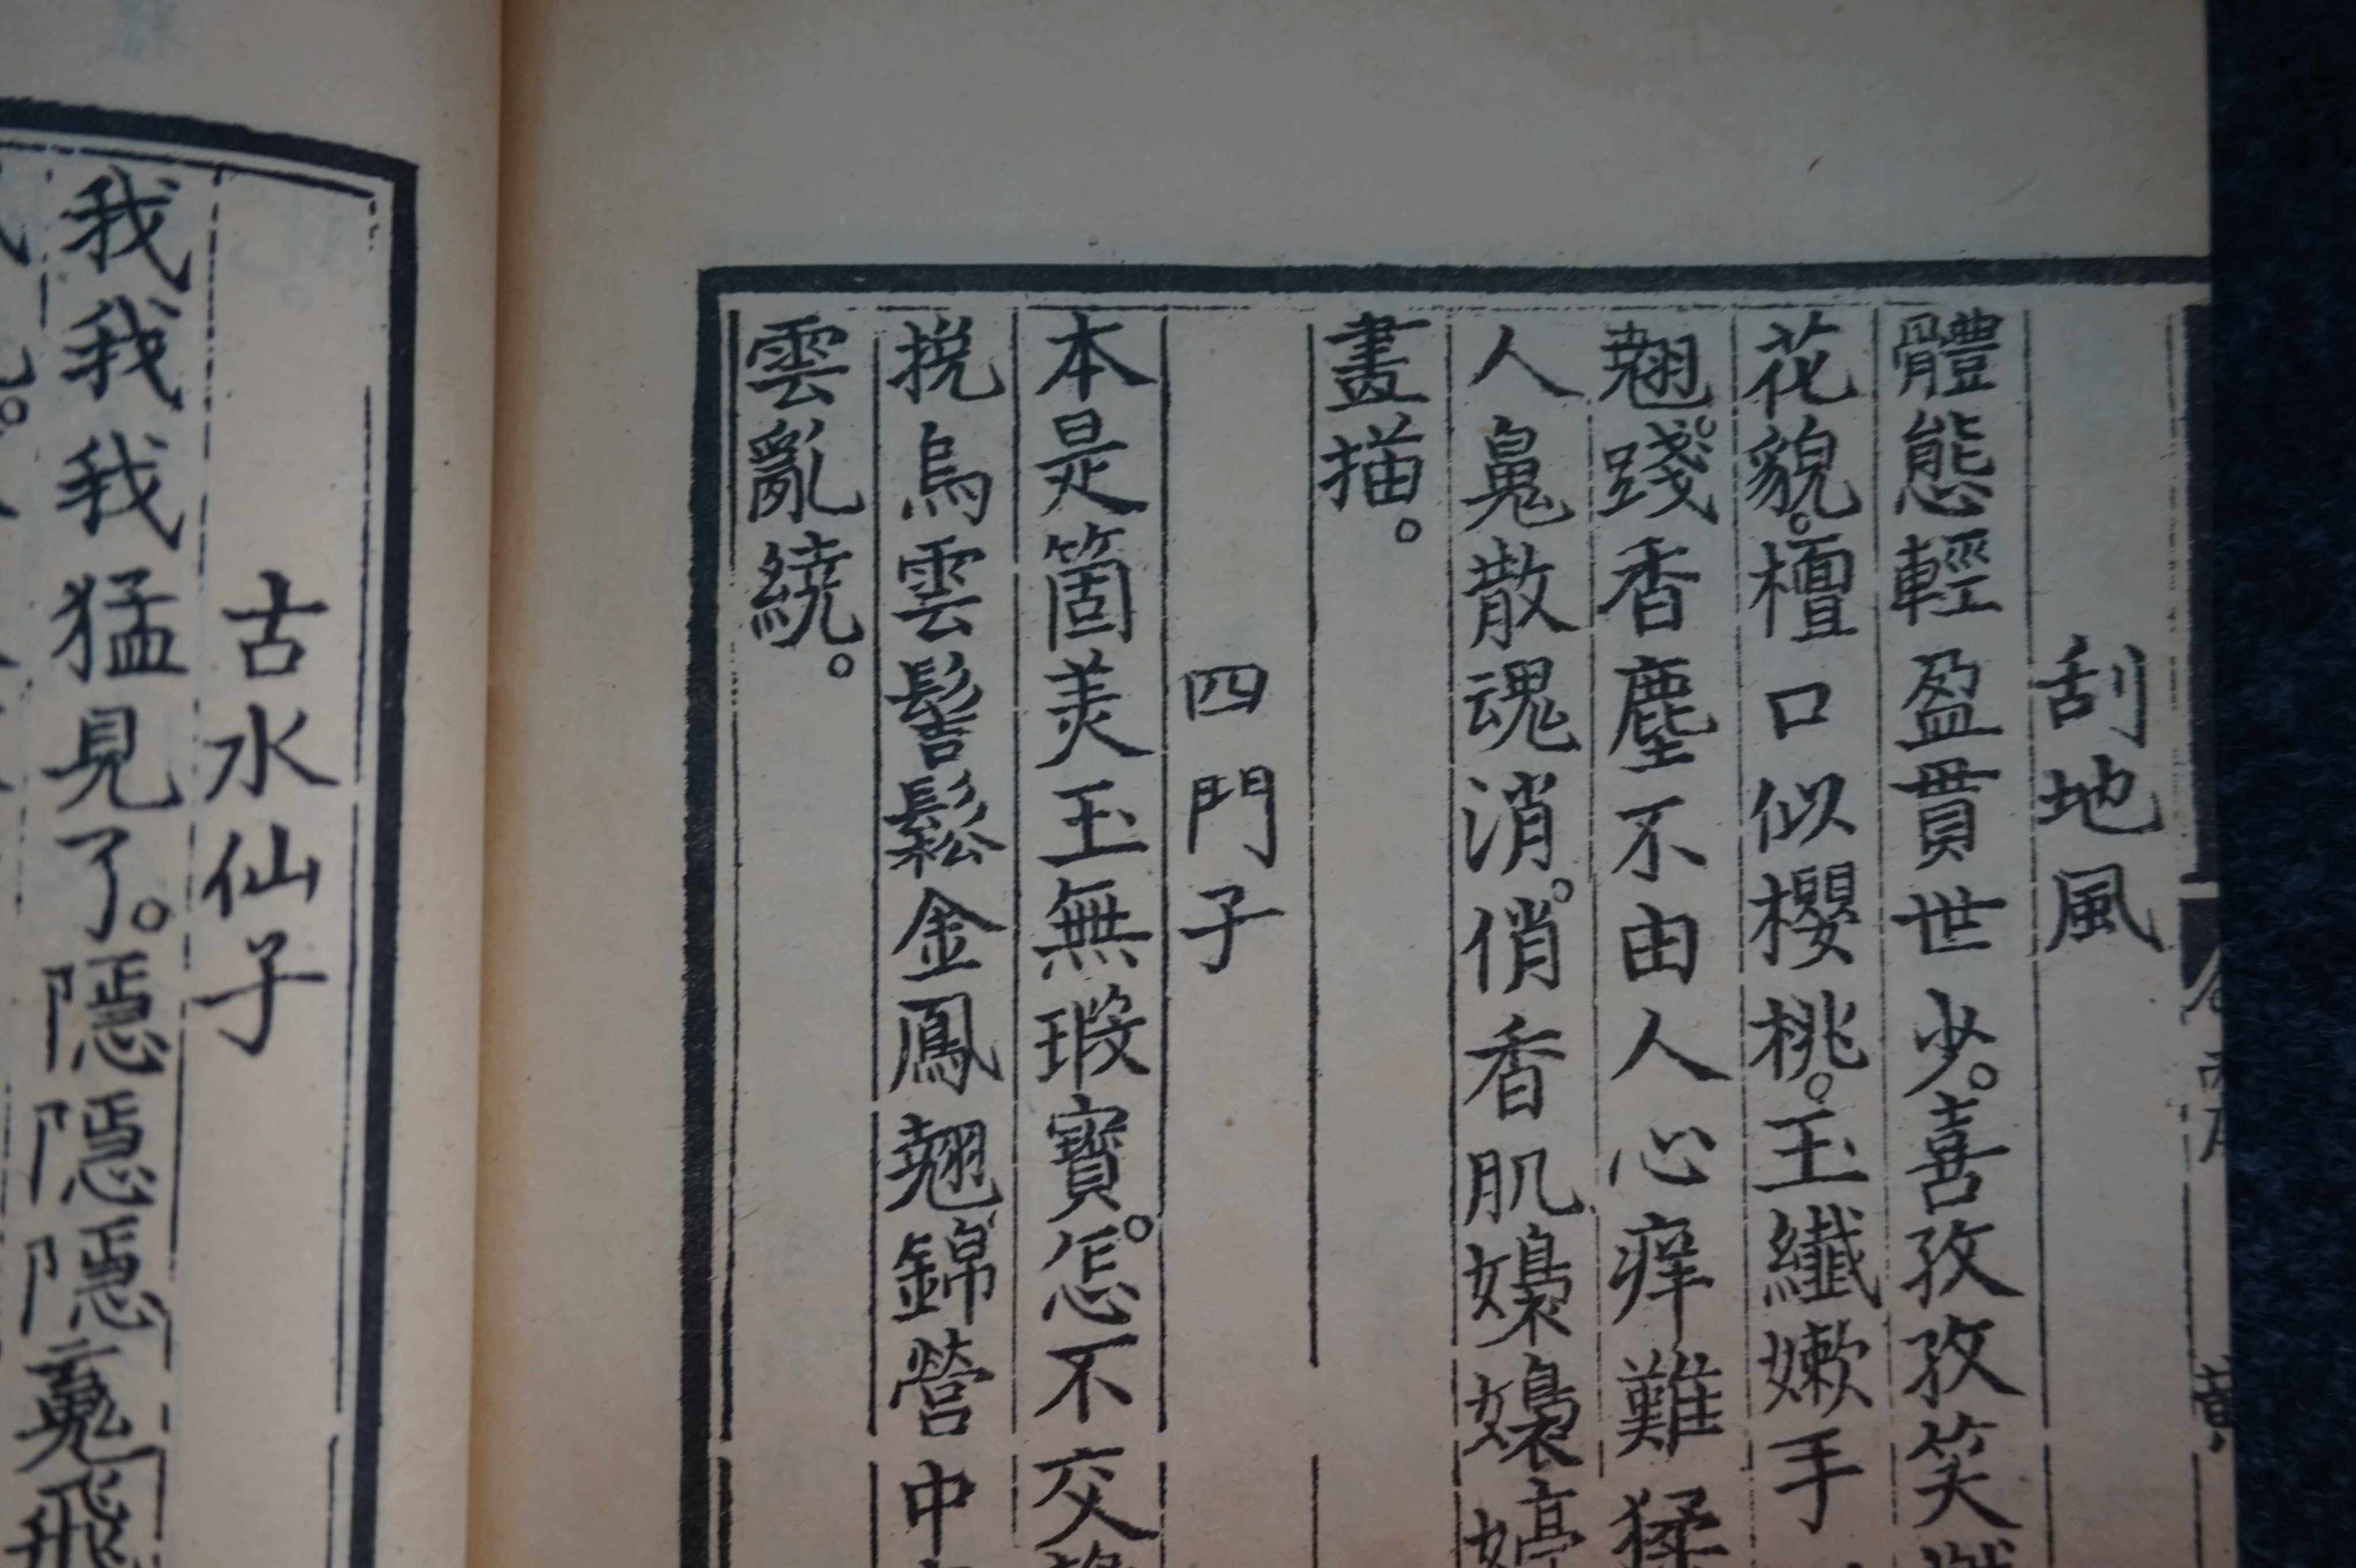 刮地風
體態輕盈貫世少。喜孜孜笑
花貌。檀口似櫻桃。玉纖嫩手
翹。踐香塵不由人心痒難揉
人鼻散魂消。俏香肌嬝嬝婷
畫描。
四門子
本是箇美玉無瑕寶。怎不交
挽烏雲髻鬆金鳳翹錦營中
雲亂繞。
古水仙子
我我我猛見了。隱隱隱蒐飛